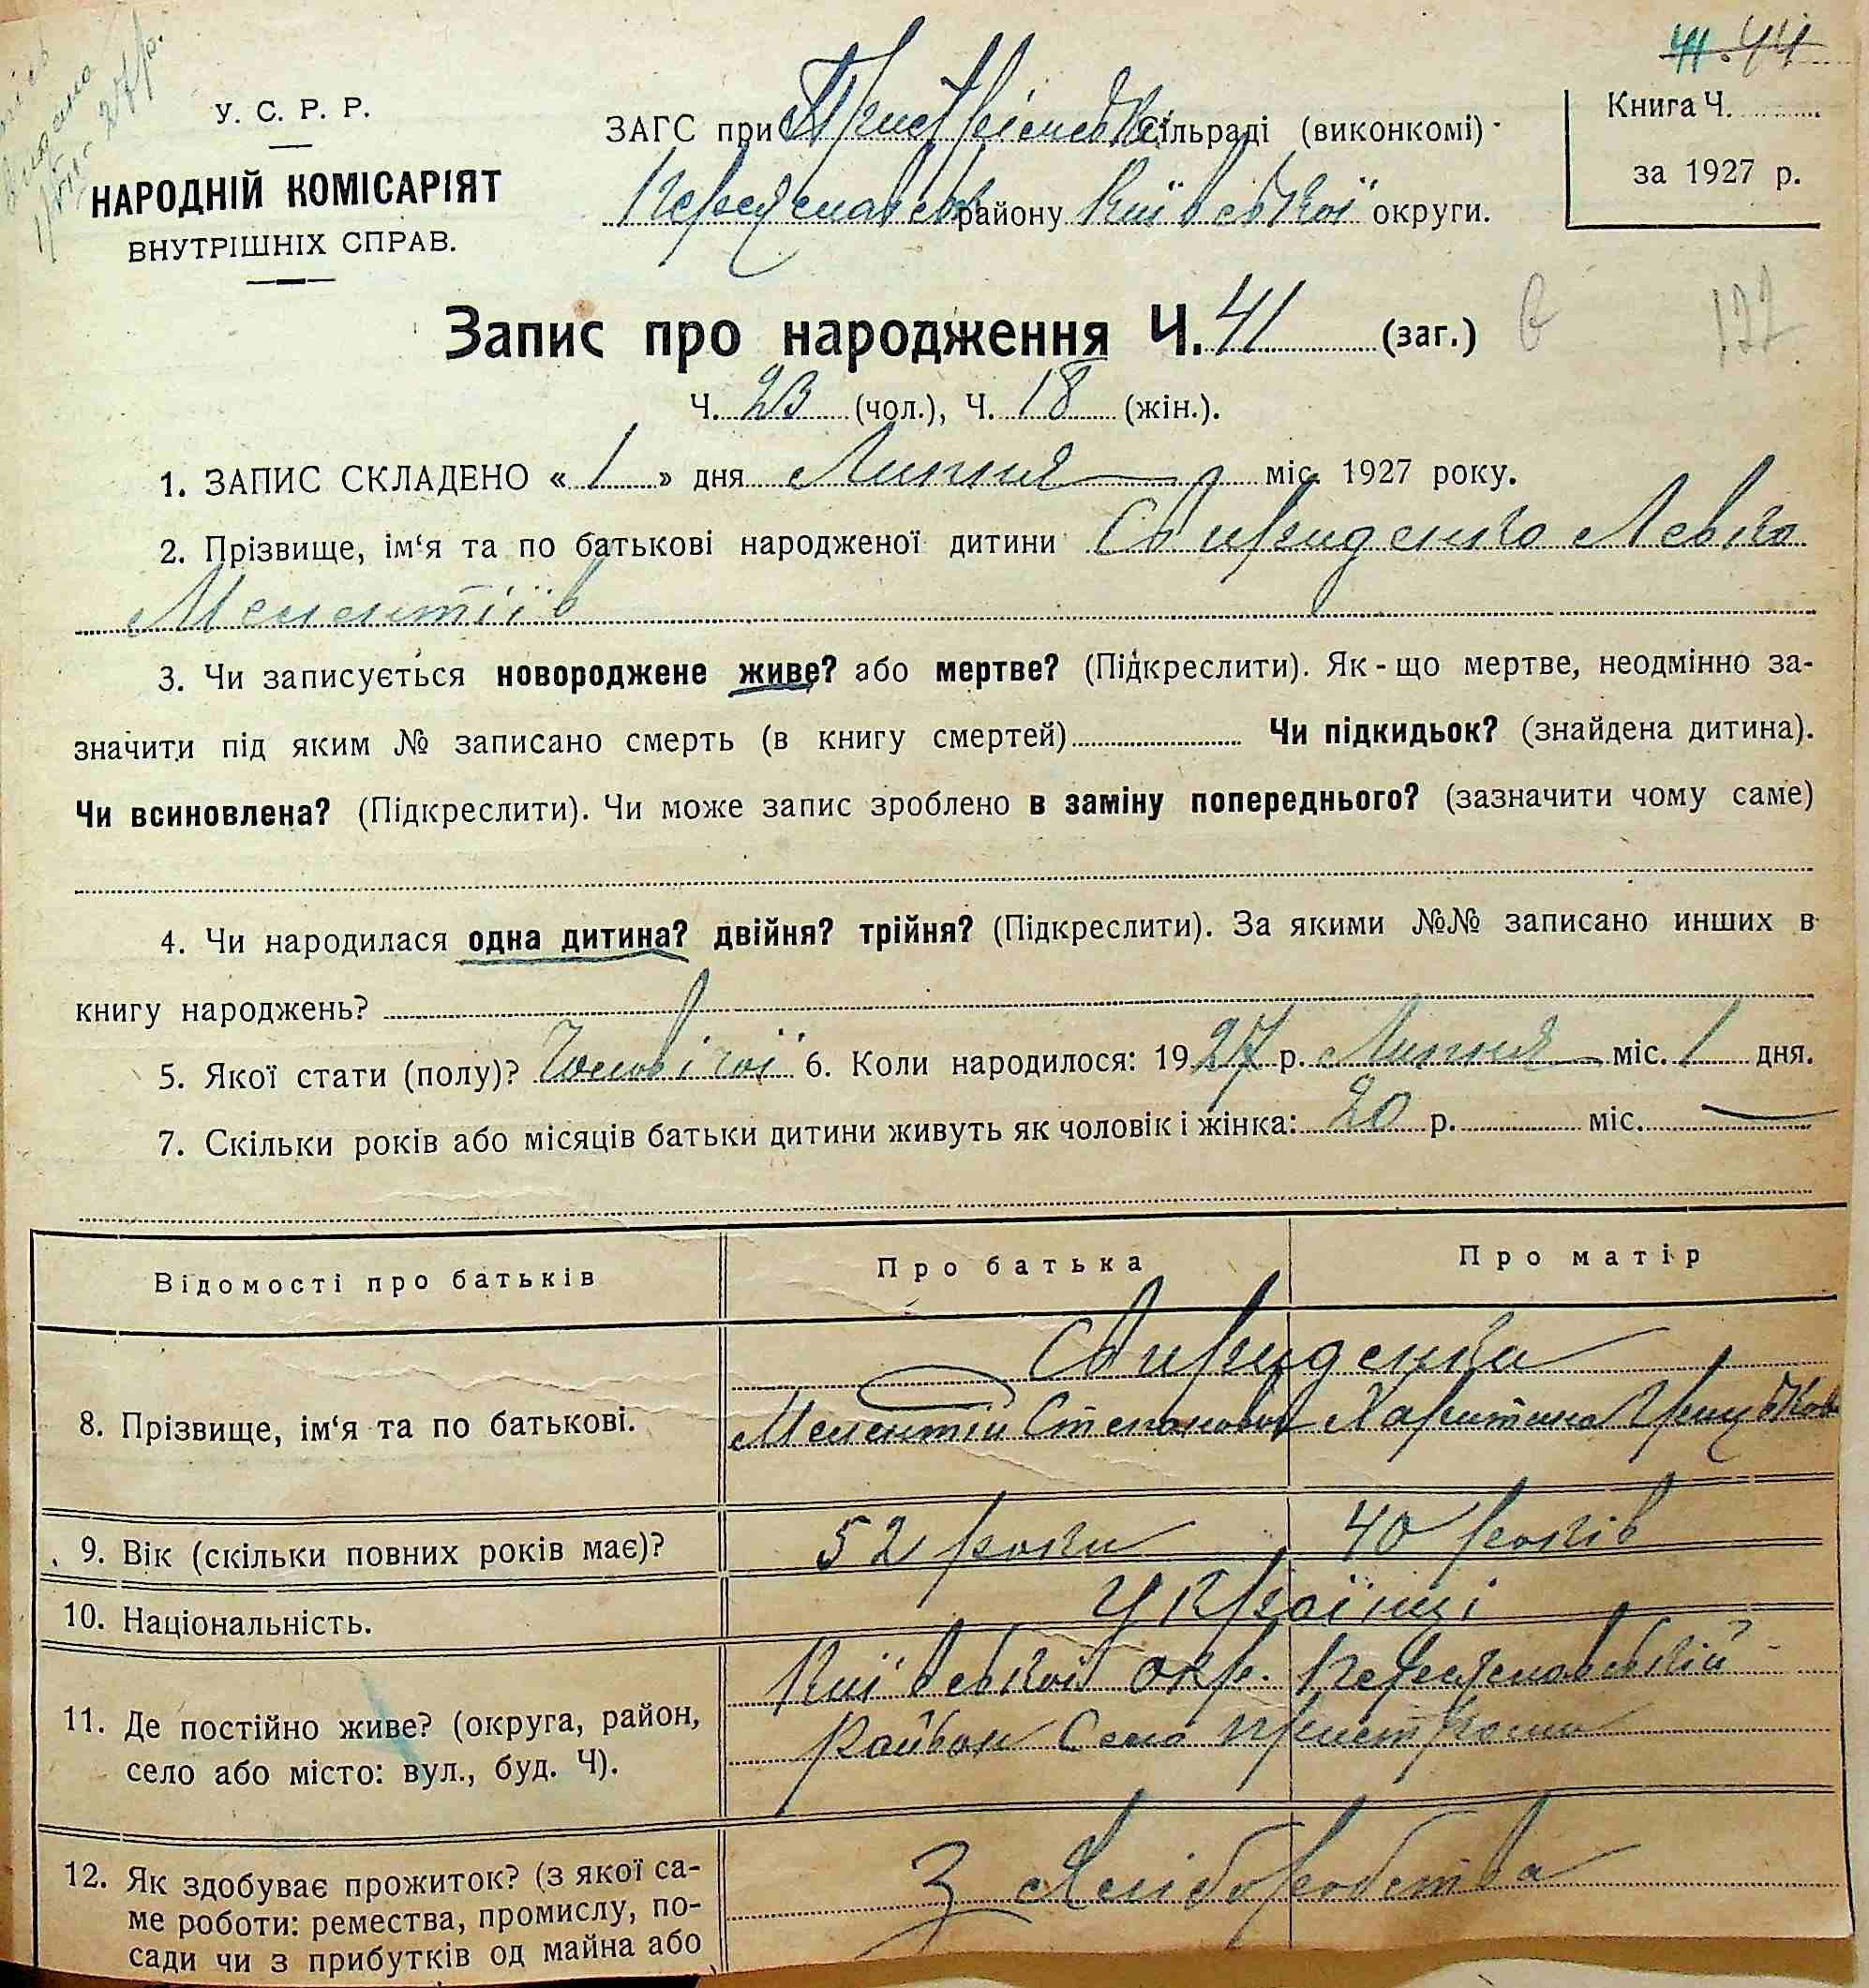 41. 44
У. С. Р. Р.
НАРОДНІЙ КОМІСАРІЯТ
ВНУТРІШНІХ СПРАВ.
ЗАГС при Пристрімській сільраді (виконкомі)
Переяславськ району Київської округи.
Книга Ч.
за 1927 р.
Запис про народження Ч. 41 (заг.)
177
Ч. 23 (чол.), Ч. 18 (жін.).
1. ЗАПИС СКЛАДЕНО « 1 » дня Липня міс. 1927 року.
2. Прізвище, ім‘я та по батькові народженої дитини Свириденко Левко
Мелентіїв
3. Чи записується новороджене живе? або мертве? (Підкреслити). Як-що мертве, неодмінно за-
значити під яким № записано смерть (в книгу смертей) Чи підкидьок? (знайдена дитина).
Чи всиновлена? (Підкреслити). Чи може запис зроблено в заміну попереднього? (зазначити чому саме)
4. Чи народилася одна дитина? двійня? трійня? (Підкреслити). За якими №№ записано инших в
книгу народжень?
5. Якої стати (полу)? Чоловічої 6. Коли народилося: 1927 р. Липня міс. 1 дня.
7. Скільки років або місяців батьки дитини живуть як чоловік і жінка: 20 р. міс.
Відомості про батьків
Про батька
Про матір
8. Прізвище, ім‘я та по батькові.
Свириденки
Мелентій Степанович Харитина Грицьков
9. Вік (скільки повних років має)?
52 роки
40 років
10. Національність.
Українці
11. Де постійно живе? (округа, район,
село або місто: вул., буд. Ч).
Київської окр. Переяславській
район Село Пристроми
12. Як здобуває прожиток? (з якої са-
ме роботи: ремества, промислу, по-
сади чи з прибутків од майна або
З хліборобства